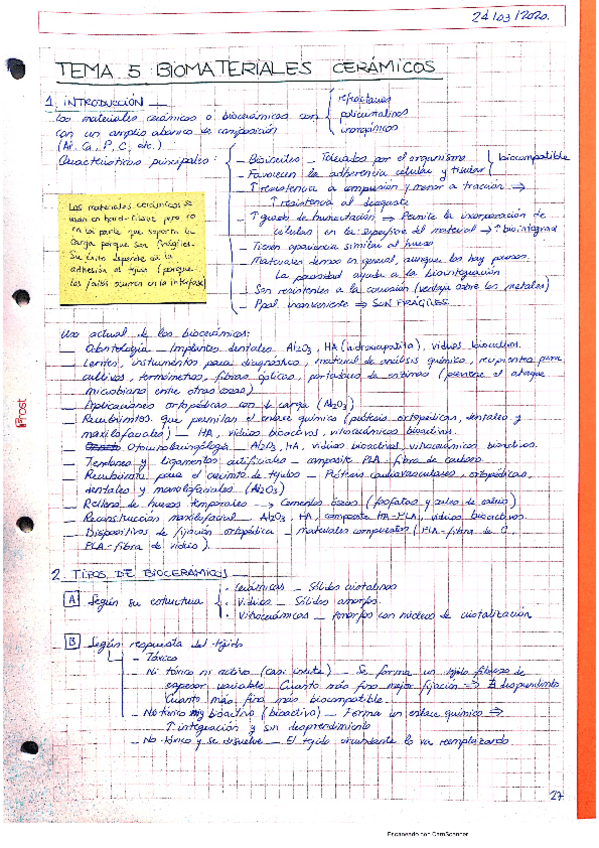 24/03/2020.
TEMA 5: BIOMATERIALES CERÁMICOS
1. INTRODUCCIÓN
Los materiales cerámicos o biocerámicos son
refractarios
policristalinos
inorgánicos
con un amplio abanico de composición
(Al, Ca, P, C, etc.)
Características principales:
- Bioinertes - Tolerados por el organismo
- Favorecen la adherencia celular y tisular
biocompatible
↑ resistencia a compresión y menor a tracción ⇒
↑ resistencia al desgaste
↑ grado de humectación ⇒ Permite la incorporación de
células en la superficie del material → ↑ biointegrad
- Tienen apariencia similar al hueso
- Materiales densos en general, aunque los hay porosos.
La porosidad ayuda a la biointegración
- Son resistentes a la corrosión (ventaja sobre los metales)
- Ppal inconveniente ⇒ SON FRÁGILES
Los materiales cerámicos se
usan en hard-tissue, pero no
en la parte que soporta la
carga porque son frágiles.
Su éxito depende de la
adhesión al tejido (porque
los fallos ocurren en la interfase)
Uso actual de los biocerámicos:
- Odontología - Implantes dentales Al₂O₃, HA (hidroxiapatita), vidrios bioactivos.
- Lentes, instrumentos para diagnóstico, material de análisis químico, recipientes para
cultivos, termómetros, fibras ópticas, portadores de enzimas (previene el ataque
microbiano entre otras cosas)
- Aplicaciones ortopédicas con la carga (Al₂O₃)
- Recubrimtos. que permitan el enlace químico (prótesis ortopédicas, dentales y
maxilofaciales) - HA, vidrios bioactivos, vitrocerámicos bioactivos.
- Otorrinolaringología - Al₂O₃, HA, vidrios bioactivos, vitrocerámicos bioactivos.
- Tendones y ligamentos artificiales - composite PLA - fibra de carbono.
- Recubrimto para el crecimto de tejidos - Prótesis cardiovasculares, ortopédicas,
dentales y maxilofaciales (Al₂O₃)
- Relleno de huesos temporales → Cementos óseos (fosfatos y sulfato de calcio)
- Reconstrucción maxilofacial - Al₂O₃, HA, composite HA-PLA, vidrios bioactivos.
- Dispositivos de fijación ortopédica - materiales compuestos (PLA-fibra de C,
PLA-fibra de vidrio).
2. TIPOS DE BIOCERÁMICOS
A Según su estructura
· Cerámicas - Sólidos cristalinos
· Vidrios - Sólidos amorfos
· Vitrocerámicos - Amorfos con núcleos de cristalización
B Según respuesta del tejido
- Tóxico
- Ni tóxico ni activo (casi inerte) - Se forma un tejido fibroso de
espesor variable. Cuanto más fino mejor fijación ⇒ ∄ desprendimto
Cuanto más fino más biocompatible.
- No tóxico bioactivo (bioactivo) - Forma un enlace químico ⇒
↑ integración y sin desprendimiento
- No-tóxico y se disuelve - El tejido circundante lo va reemplazando
27
Prost
Escaneado con CamScanner